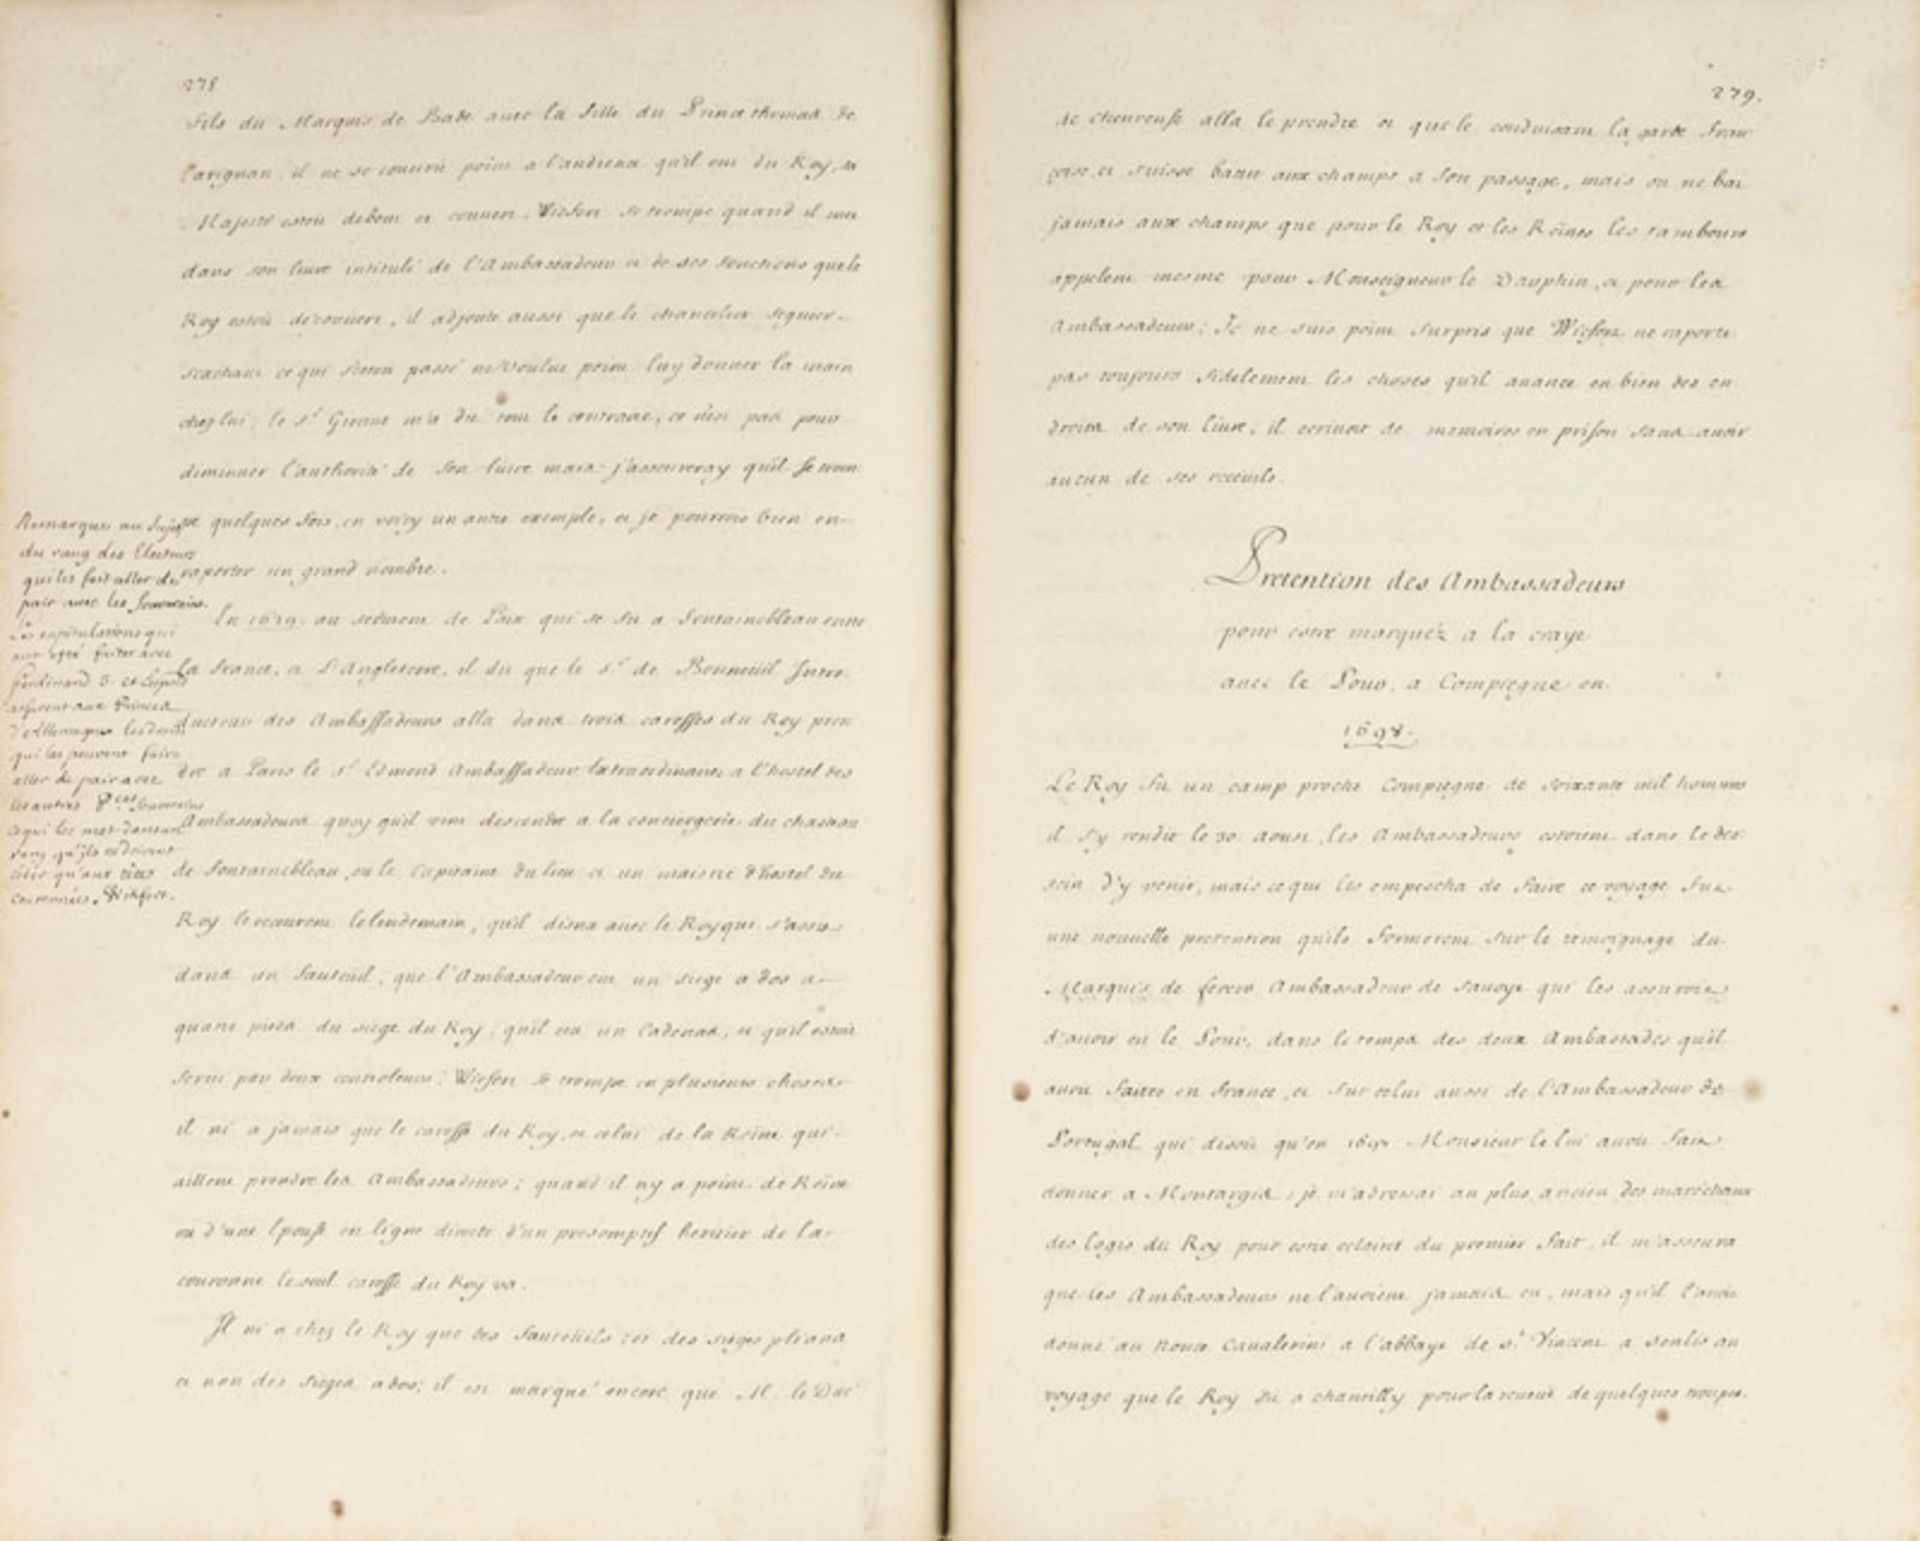 278
fils du Marquis de Bade avec la fille du Prince thomas de
Carignan, il ne se couvrit point a l'audience qu'il eut du Roy, sa
Majesté estoit debout et couvert. Wicfort se trompe quand il met
dans son livre intitulé de l'Ambassadeur et de ses fonctions que le
Roy estoit découvert, il adjoute aussi que le chancelier seguier
scachant ce qui s'étoit passé ne voulut point luy donner la main
chez lui; le sr. Giraut m'a dit tout le contraire, ce n'est pas pour
diminuer l'authorité de son livre mais j'asseureray qu'il se trom
pe quelques fois, en voicy un autre exemple, et je pourrois bien en
raporter un grand nombre.
Remarques au sujet
du rang des Electeurs
qui les fait aller de
pair avec les souverains.
Les capitulations qui
ont esté faites avec
ferdinand 3. et Leopold
asseurent aux Princes
d'Allemagne les droits
qui les peuvent faire
aller de pair avec
les autres Pces souverains
ce qui les met dans un
rang qu'ils ne doivent
céder qu'aux têtes
couronnées. Wickfort.
En 1629. au serment de Paix qui se fit a fontainebleau entre
la france, et l'Angleterre, il dit que le sr. de Bonneüil Intro
ducteur des Ambassadeurs alla dans trois carosses du Roy pren
dre a Paris le sr Edmond Ambassadeur Extraordinaire a l'hostel des
Ambassadeurs quoy qu'il vint descendre a la conciergerie du chasteau
de fontainebleau, ou le Capitaine du lieu et un maistre d'hostel du
Roy le receurent le lendemain, qu'il disna avec le Roy que s'assit
dans un fauteuil, que l'Ambassadeur eut un siege a dos a
quatre pieds du siege du Roy, qu'il eut un Cadenas, et qu'il estoit
servi par deux controleurs; Wicfort se trompe en plusieurs choses
il ni a jamais que le carosse du Roy, et celui de la Reine qui
aillent prendre les Ambassadeurs; quand il ny a point de Reine
ou d'une Epouse en ligne directe d'un presomptif heritier de la
couronne le seul carosse du Roy va.
Il ni a chez le Roy que des fauteüils, et des sieges plians
et non des sieges a dos; il est marqué encore que M. le Duc
279.
de chevreuse alla le prendre et que le conduisant la garde fran
çoise et suisse battit aux champs a son passage, mais on ne bat
jamais aux champs que pour le Roy et les Reines les tambours
appelent mesme pour Monseigneur le Dauphin, et pour les
Ambassadeurs; Je ne suis point surpris que Wicfort ne raporte
pas toujours fidelement les choses qu'il avance en bien des en
droits de son livre; il ecrivoit de memoires en prison sans avoir
aucun de ses receuils.
Pretention des Ambassadeurs
pour estre marquéz a la craye
avec le Pour, a Compiegne en
1698.
Le Roy fit un camp proche Compiegne de soixante mil hommes
il s'y rendit le 30. aoust, les Ambassadeurs estoient dans le des
sein d'y venir, mais ce qui les empescha de faire ce voyage fut
une nouvelle pretention qu'ils formerent sur le temoignage du
Marquis de ferrero Ambassadeur de Savoye qui les asseuroit
d'avoir eu le Pour, dans le temps des deux Ambassades qu'il
avoit faites en france, et sur celui aussi de l'Ambassadeur de
Portugal qui disoit qu'en Monsieur le lui avoit fait
donner a Montargis; je m'adressai au plus ancien des maréchaux
des logis du Roy pour estre eclairci du premier fait, il m'asseura
que les Ambassadeurs ne l'avoient jamais eu, mais qu'il l'avoit
donné au Nonce Cavalerini a l'abbaye de st. Vincent a senlis au
voyage que le Roy fit a chantilly pour la reveue de quelques troupes.